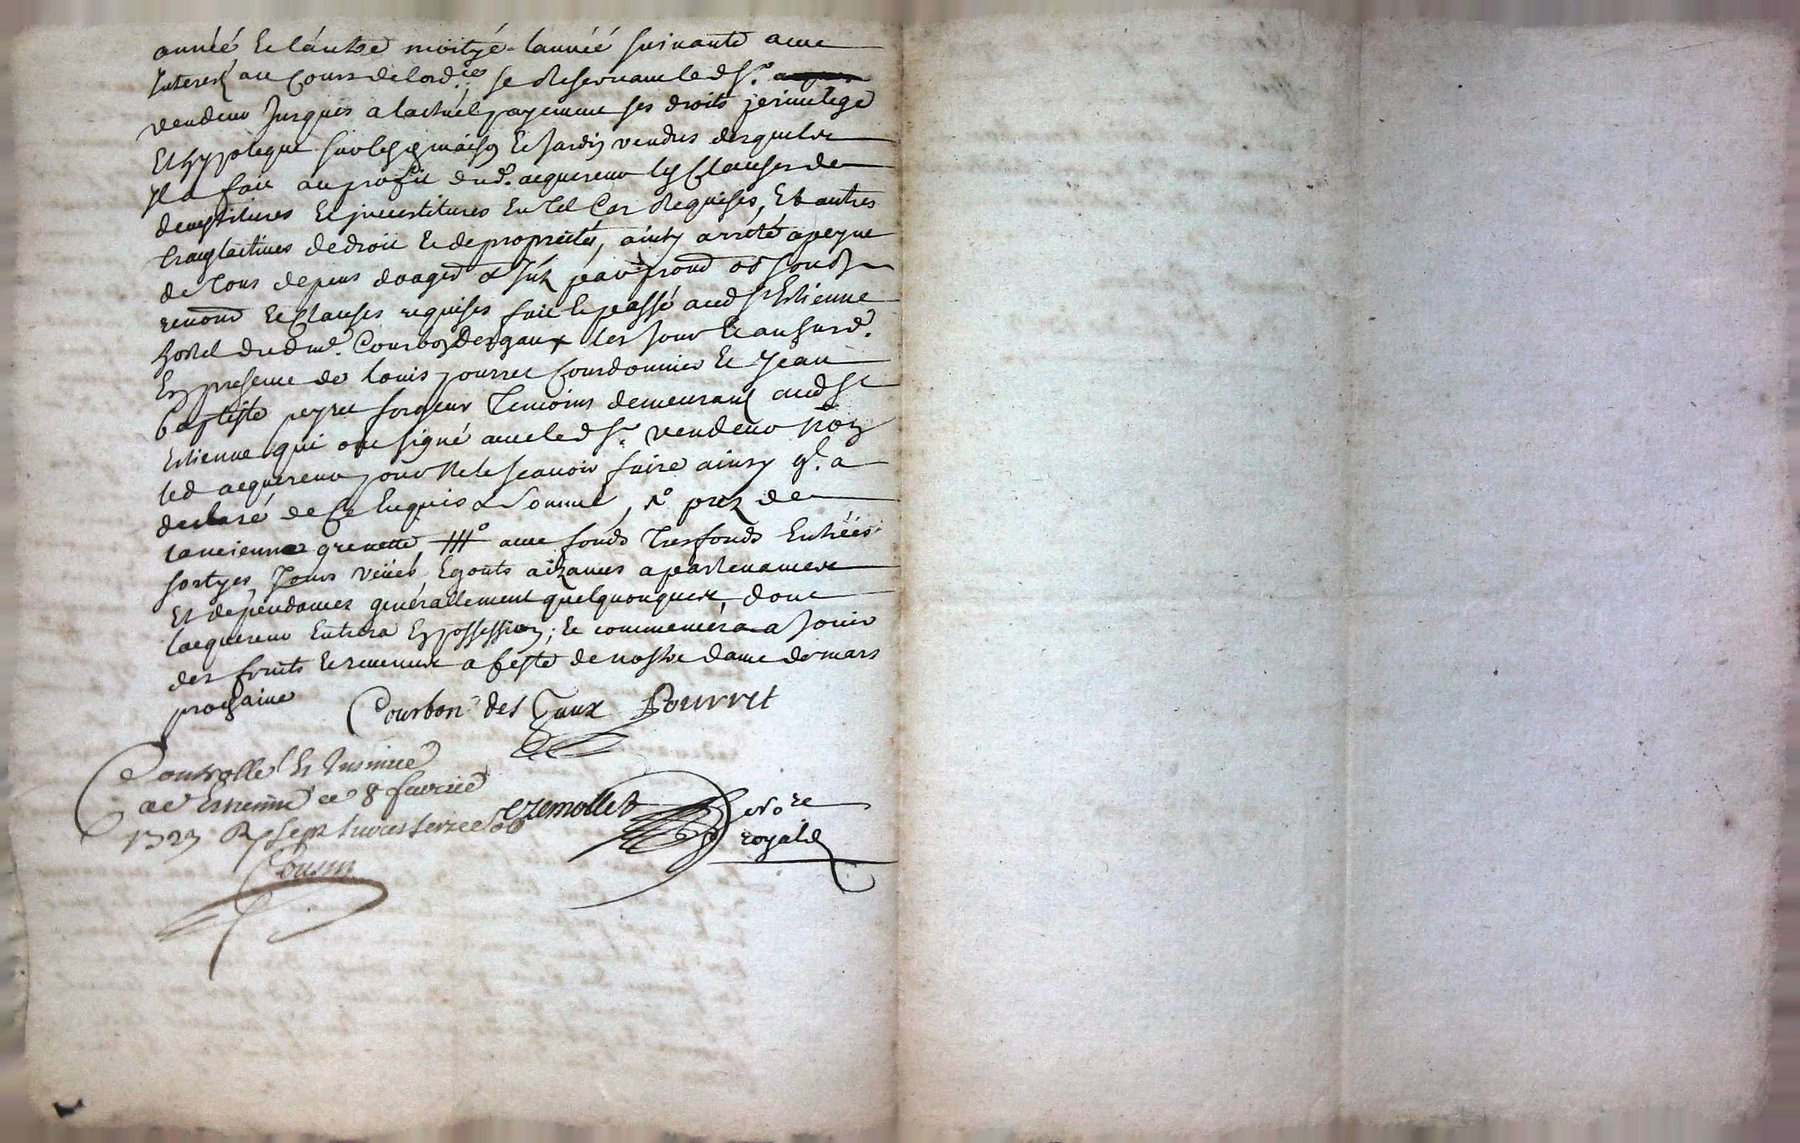 année & lautre moityé lannée suivante avec
Interest au Cours de lord.ce se Reservant led Sr.
vendeur Jusques a lactuel payement ses droits privilege
Et hypoteque sur lesd maison & Jardin vendus desquels
Il a fait au profit dud. acquereur les Clauses de
demystitures & investitures En tel Cas Requises, Et autres
translatives de droit & de proprieté, ainsy arrété a peyne
de tous depens domages &
renond & Clauses requises fait & passé aud St Estienne
hostel dud me. Courbon Desgaux les Jour & an susd.
En presence de Louis pourret Courdonnier & Jean
Baptiste peyret forgeur Temoins demeurant aud St
Estienne qui ont signé avec led Sr. vendeur non
led acquereur pour ne le scavoir faire ainsy ql. a
declaré de ce Enquis & Sommé, pres de
lancienne grenette avec fonds Tresfonds Entrées
sortyes, Jours veües, Egouts aizances apartenances
Et dependances generallement quelquonques, dont
lacquereur Entrera En possession; & commencera a Jouir
des fruits & revenus a feste de nostre dame de mars
prochaine
Courbon des Gaux Pourret
Controllé & Insinué
a St Estienne ce 8 fevrier
1727 R sept livres seize s
Cousin
nore
royal